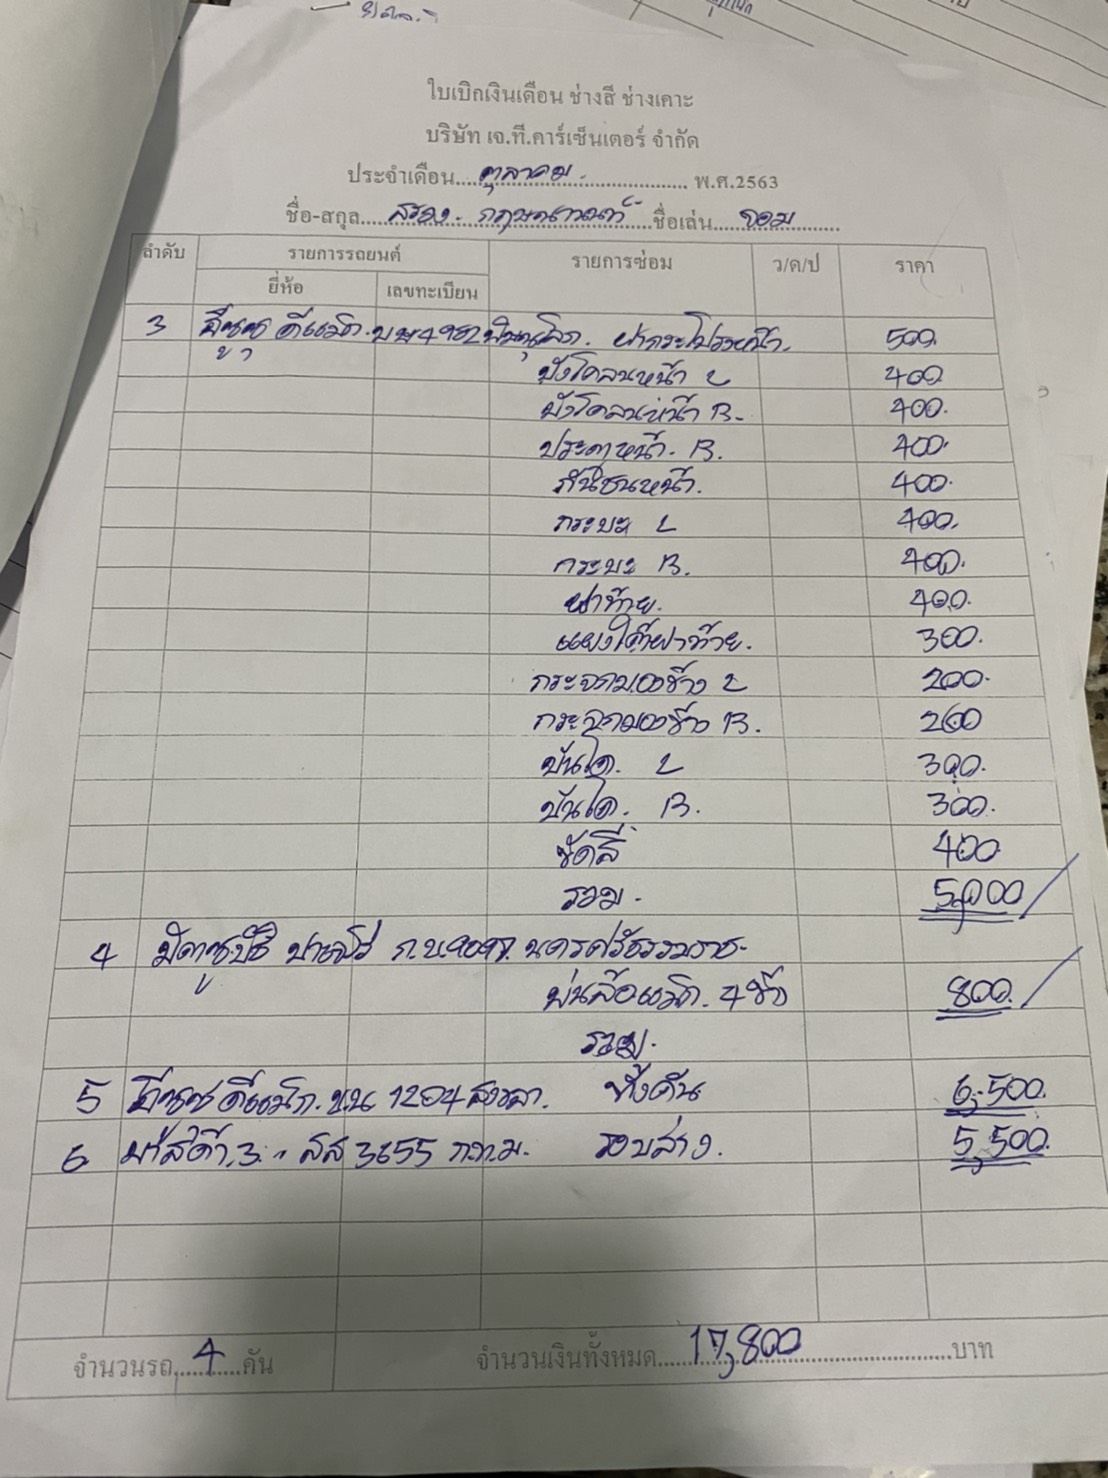 ใบเบิกเงินเดือน ช่างสี ช่างเคาะ
บริษัท เจ.ที.คาร์เซ็นเตอร์ จำกัด
ประจำเดือน....ตุลาคม.................... พ.ศ.2563
ชื่อ-สกุล....................ชื่อเล่น....จอม............
ลำดับ รายการรถยนต์ รายการซ่อม ว/ด/ป ราคา
ยี่ห้อ เลขทะเบียน
3 อีซูซุ ดีแมก. บษ4982 พิษณุโลก. ฝากระโปรงหน้า. 500.
บังโคลนหน้า L 400
บังโคลนหน้า R. 400.
ประตูหน้า. R. 400.
กันชนหน้า. 400.
กระบะ L 400.
กระบะ R. 400.
ฝาท้าย. 400.
แผงใต้ฝาท้าย. 300.
กระจกมองข้าง L 200.
กระจกมองข้าง R. 200
บันได. L 300.
บันได. R. 300.
ขัดสี 400
รวม. 5,000
4 มิตซูบิชิ ปาเจโร่ นครศรีธรรมราช.
พ่นล้อแม็ก. 4 ข้าง 800.
รวม.
5 อีซูซุ ดีแมก. ขน 1204 สงขลา. ทั้งคัน 6,500.
6 มาสด้า.3. สส 3655 ก.ท.ม. รอบล่าง. 5,500.
จำนวนรถ....4....คัน จำนวนเงินทั้งหมด....17,800....................บาท